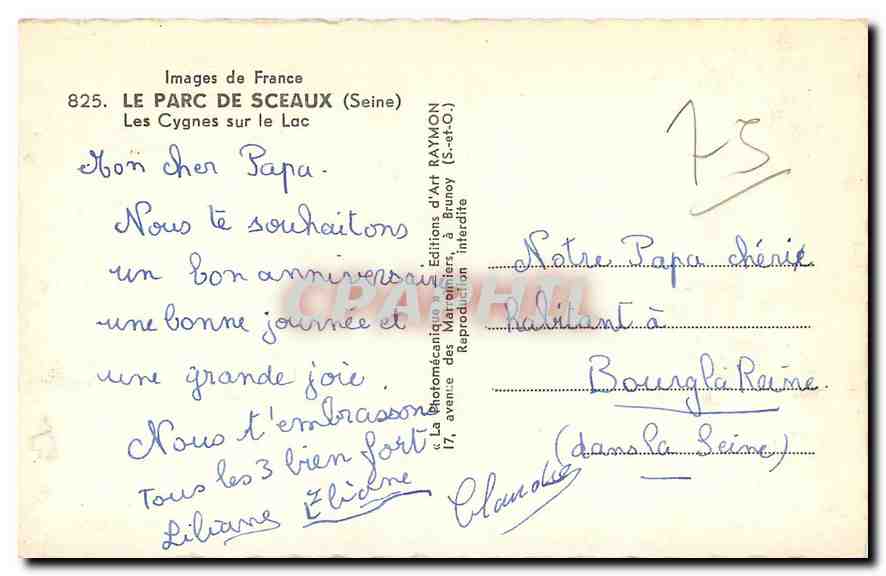 Images de France
825. LE PARC DE SCEAUX (Seine)
Les Cygnes sur le Lac
Mon cher Papa.
Nous te souhaitons
un bon anniversaire
une bonne journée et
une grande joie.
Nous t'embrassons
Tous les 3 bien fort
Liliane Eliane Claudie
« La Photomécanique » Editions d'Art RAYMON
17, avenue des Marronniers, à Brunoy (S.-et-O.)
Reproduction interdite
75
Notre Papa chéri
habitant à
Bourg la Reine
(dans la Seine)
CPARAMA